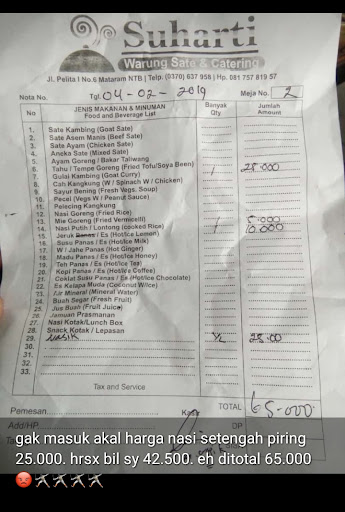 Suharti
Warung Sate & Catering
Jl. Pelita I No.6 Mataram NTB | Telp. (0370) 637 958 | Hp. 081 757 819 57
Nota No. Tgl. 04-02-2019 Meja No. 2
No JENIS MAKANAN & MINUMAN Banyak Jumlah
Food and Beverage List Qty Amount
1. Sate Kambing (Goat Sate)
2. Sate Asem Manis (Beef Sate)
3. Sate Ayam (Chicken Sate)
4. Aneka Sate (Mixed Sate)
5. Ayam Goreng / Bakar Taliwang
6. Tahu / Tempe Goreng (Fried Tofu/Soya Been)
7. Gulai Kambing (Goat Curry) 1 25.000
8. Cah Kangkung (W / Spinach W / Chicken)
9. Sayur Bening (Fresh Vegs. Soup)
10. Pecel (Vegs W / Peanut Sauce)
11. Pelecing Kangkung
12. Nasi Goreng (Fried Rice)
13. Mie Goreng (Fried Vermicelli)
14. Nasi Putih / Lontong (cooked Rice) 1 5.000
15. Jeruk Panas / Es (Hot/Ice Lemon) 1 10.000
16. Susu Panas / Es (Hot/Ice Milk)
17. W / Jahe Panas (Hot Ginger)
18. Madu Panas / Es (Hot/Ice Honey)
19. Teh Panas / Es (Hot/Ice Tea)
20. Kopi Panas / Es (Hot/Ice Coffee)
21. Coklat Susu Panas / Es (Hot/Ice Chocolate)
22. Es Kelapa Muda (Coconut W/Ice)
23. Air Mineral (Mineral Water)
24. Buah Segar (Fresh Fruit)
25. Jus Buah (Fruit Juice)
26. Jamuan Prasmanan
27. Nasi Kotak/Lunch Box
28. Snack Kotak / Lepasan
29. ½ 25.00
30.
31.
32.
33.
Tax and Service
Pemesan. TOTAL 65.000
Add/HP. DP
gak masuk akal harga nasi setengah piring
25.000. hrsx bil sy 42.500. eh ditotal 65.000